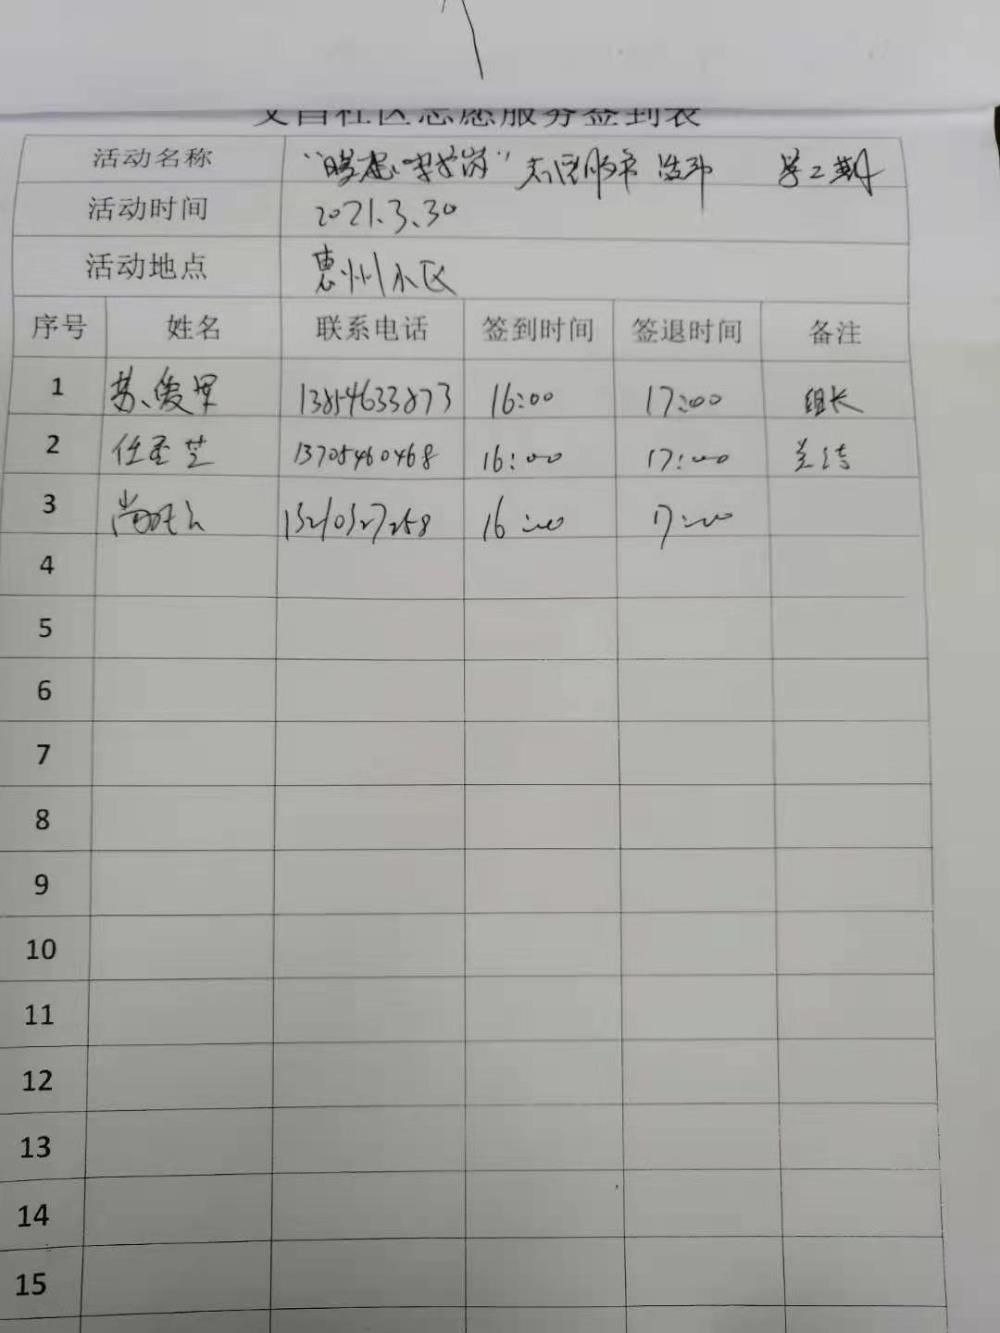 文昌社区志愿服务签到表
活动名称 志愿服务活动 第二期
活动时间 2021.3.30
活动地点 惠州小区
序号 姓名 联系电话 签到时间 签退时间 备注
1 13854633873 16:00 17:00 组长
2 任圣芝 13705460468 16:00 17:00
3 16:00 17:00
4
5
6
7
8
9
10
11
12
13
14
15